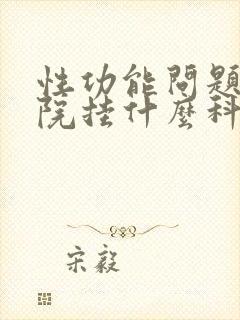 性功能問題
院挂什麼科
宋毅